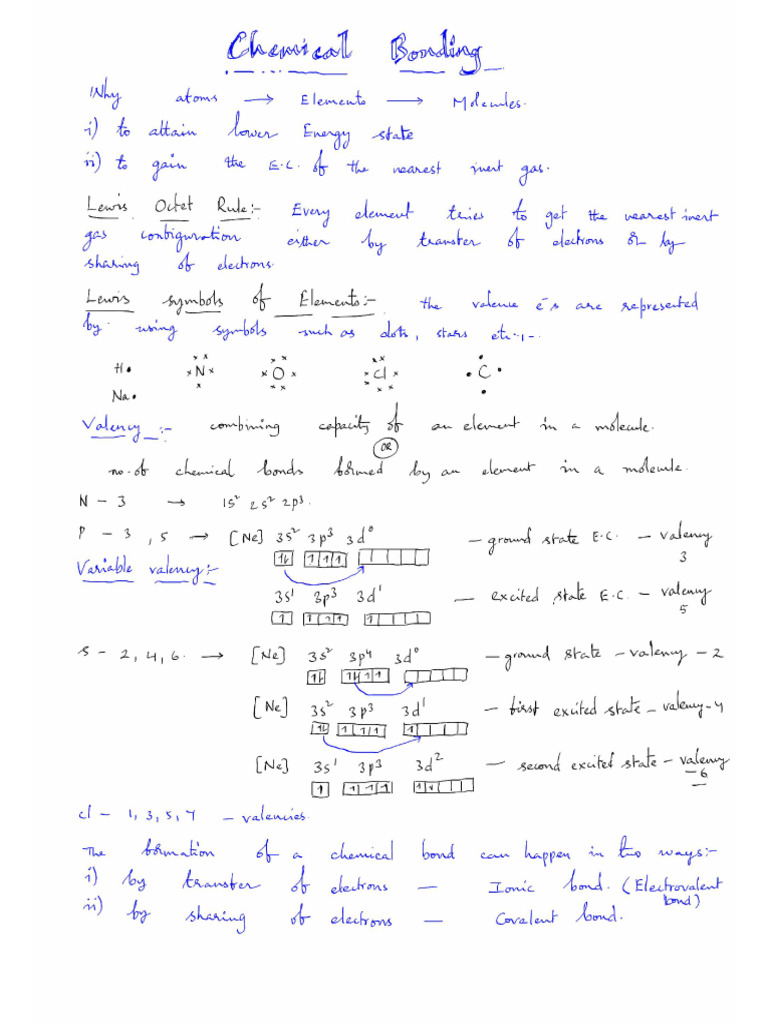 Chemical Bonding
Why atoms → Elements → Molecules.
i) to attain lower Energy state
ii) to gain the E.C. of the nearest inert gas.
Lewis Octet Rule:- Every element tries to get the nearest inert
gas configuration either by transfer of electrons or by
sharing of electrons.
Lewis symbols of Elements:- the valence e⁻s are represented
by using symbols such as dots, stars etc.,-
H• N O Cl C
Na•
Valency:- combining capacity of an element in a molecule.
OR
no. of chemical bonds formed by an element in a molecule.
N - 3 → 1s² 2s² 2p³.
P - 3, 5 → [Ne] 3s² 3p³ 3d⁰ - ground state E.C. - valency
3
Variable valency:-
3s¹ 3p³ 3d¹ - excited state E.C. - valency
5
S - 2, 4, 6. → [Ne] 3s² 3p⁴ 3d⁰ - ground state - valency - 2
[Ne] 3s² 3p³ 3d¹ - first excited state - valency - 4
[Ne] 3s¹ 3p³ 3d² - second excited state - valency
- 6
cl - 1, 3, 5, 7 - valencies.
The formation of a chemical bond can happen in two ways:-
i) by transfer of electrons - Ionic bond. (Electrovalent
bond)
ii) by sharing of electrons - Covalent bond.